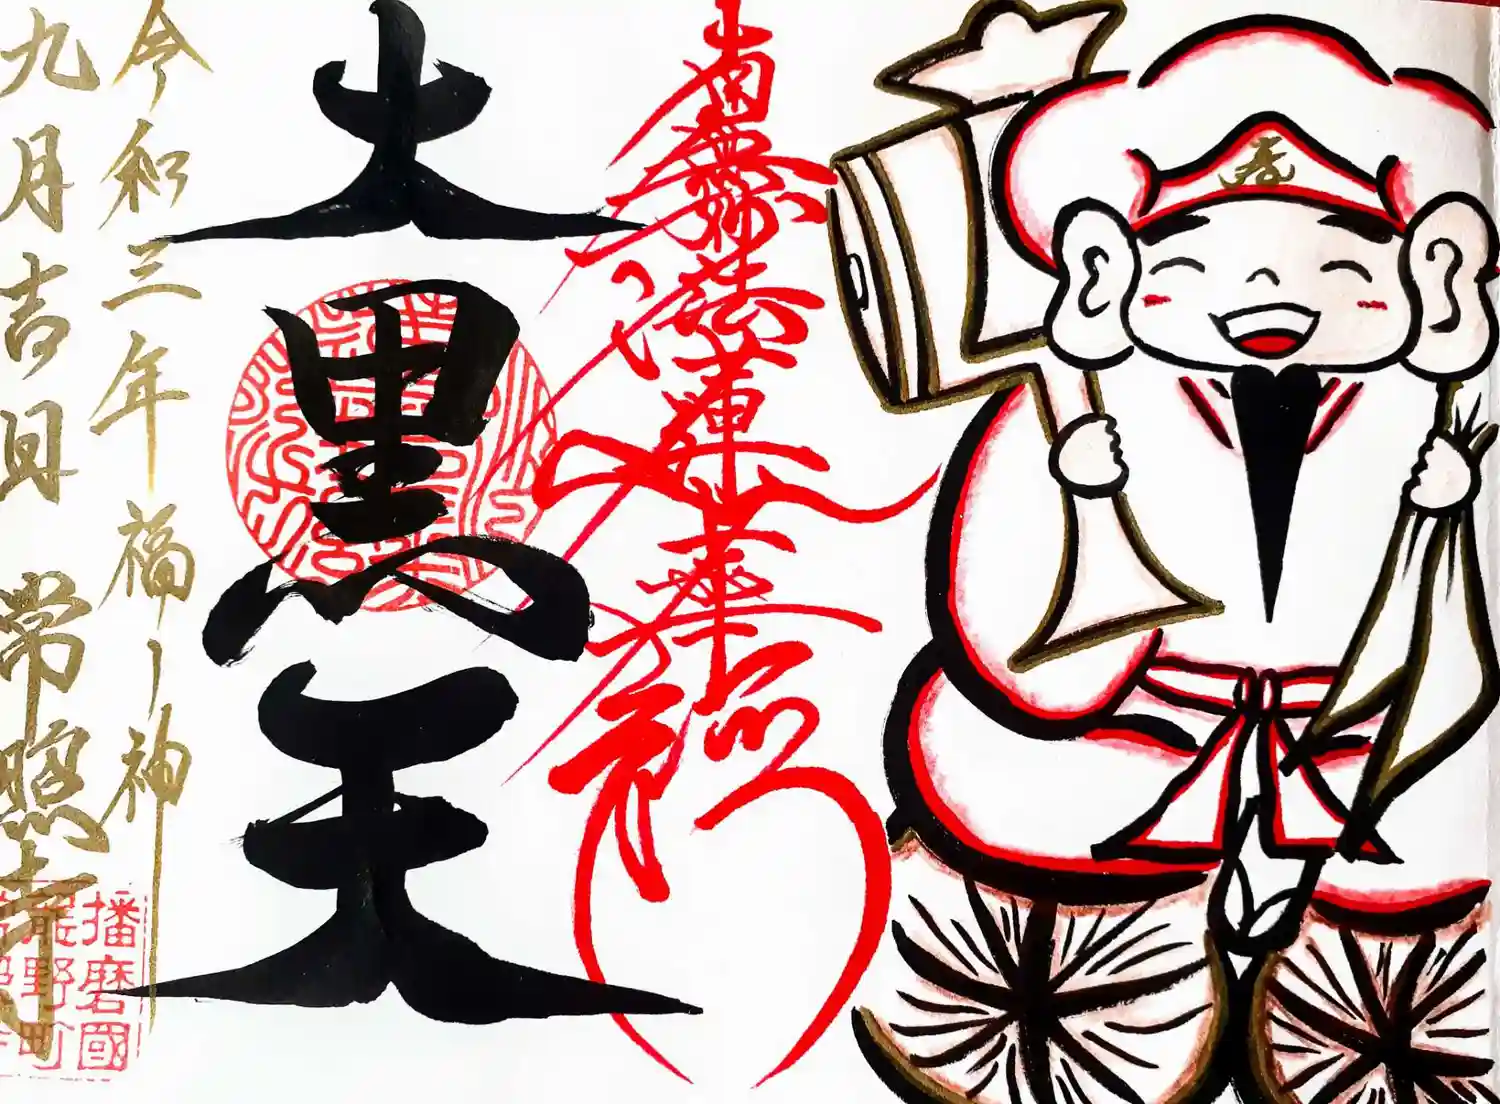 南無妙法蓮華経
大黒天
令和三年 福ノ神
九月吉日 常照寺
播磨國
龍野町